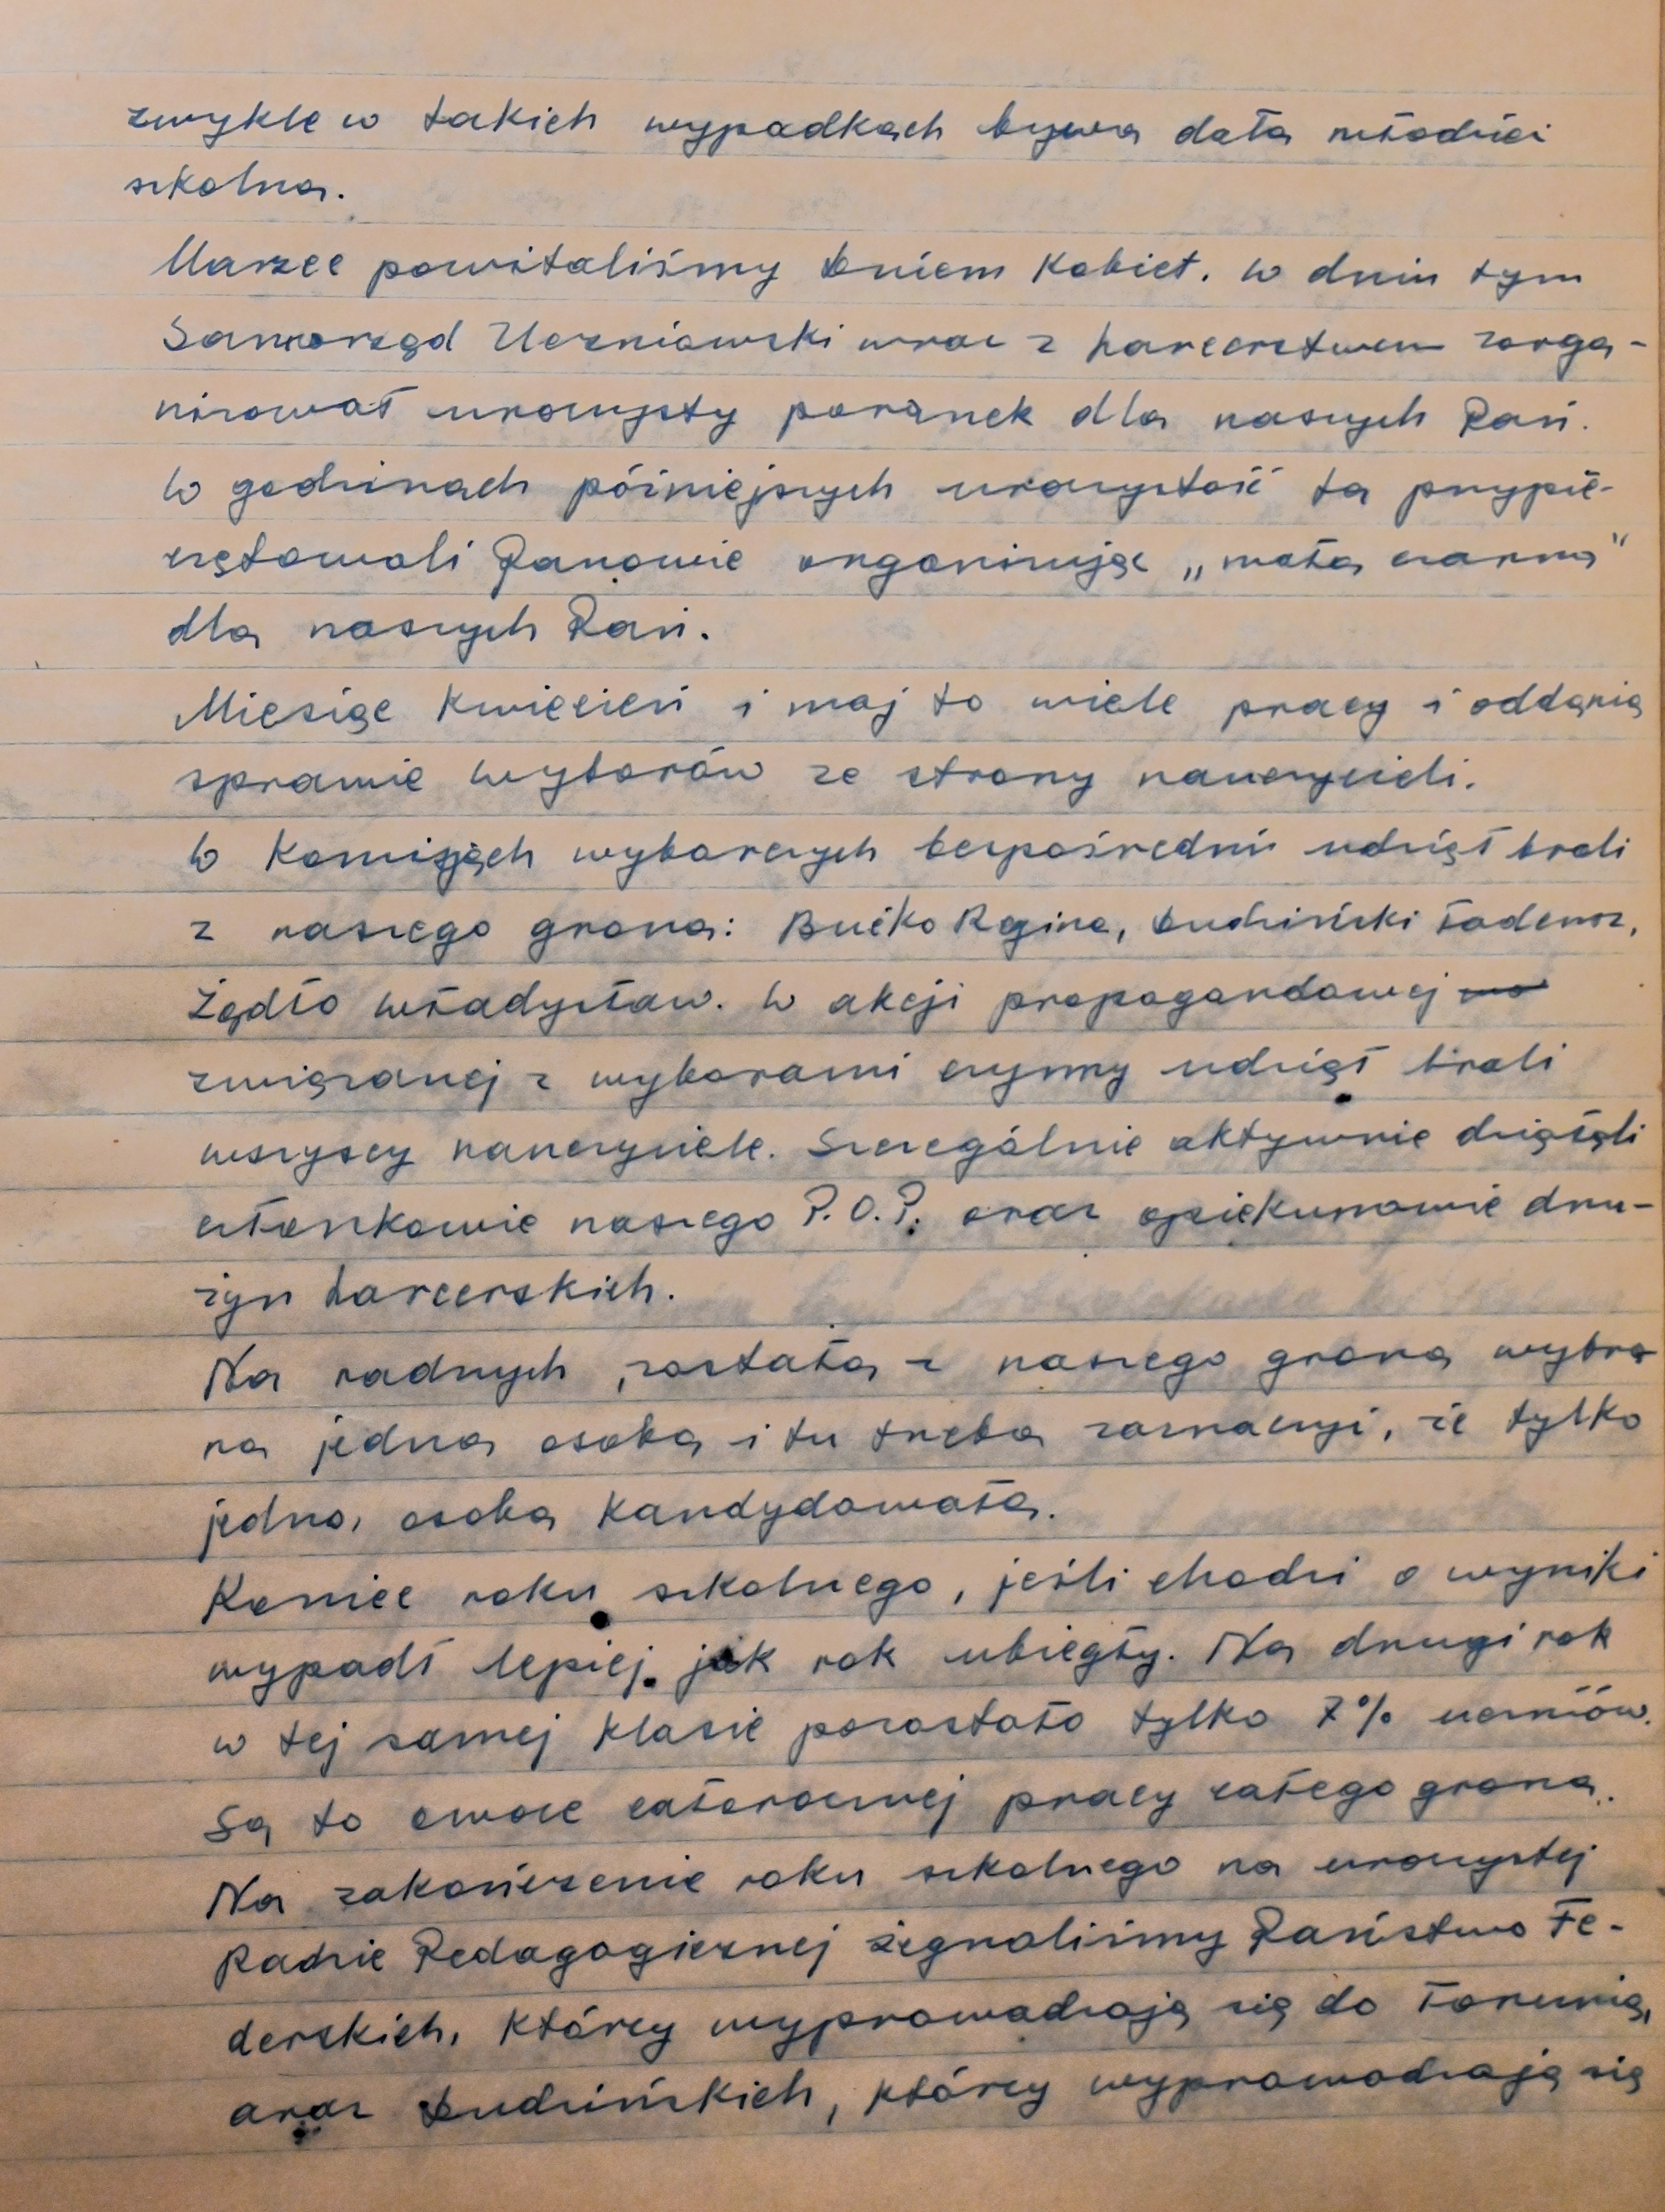 zwykle w takich wypadkach bywa dała młodzież
szkolna.
Marzec powitaliśmy Dniem Kobiet. W dniu tym
Samorząd Uczniowski wraz z harcerstwem zorga-
nizował uroczysty poranek dla naszych Pań.
W godzinach późniejszych uroczystość tą przypie-
czętowali Panowie organizując „małą czarną"
dla naszych Pań.
Miesiąc kwiecień i maj to wiele pracy i oddania
sprawie wyborów ze strony nauczycieli.
W Komisjach wyborczych bezpośredni udział brali
z naszego grona: Bućko Regina, Dudziński Tadeusz,
Żądło Władysław. W akcji propagandowej
związanej z wyborami czynny udział brali
wszyscy nauczyciele. Szczególnie aktywnie działali
członkowie naszego P.O.P. oraz opiekunowie dru-
żyn harcerskich.
Na radnych została z naszego grona wybra-
na jedna osoba i tu trzeba zaznaczyć, że tylko
jedna osoba kandydowała.
Koniec roku szkolnego, jeśli chodzi o wyniki
wypadł lepiej jak rok ubiegły. Na drugi rok
w tej samej klasie pozostało tylko 7% uczniów.
Są to owoce całorocznej pracy całego grona.
Na zakończenie roku szkolnego na uroczystej
Radzie Pedagogicznej żegnaliśmy Państwo Fe-
derskich, którzy wyprowadzają się do Torunia,
oraz Dudzińskich, którzy wyprowadzają się